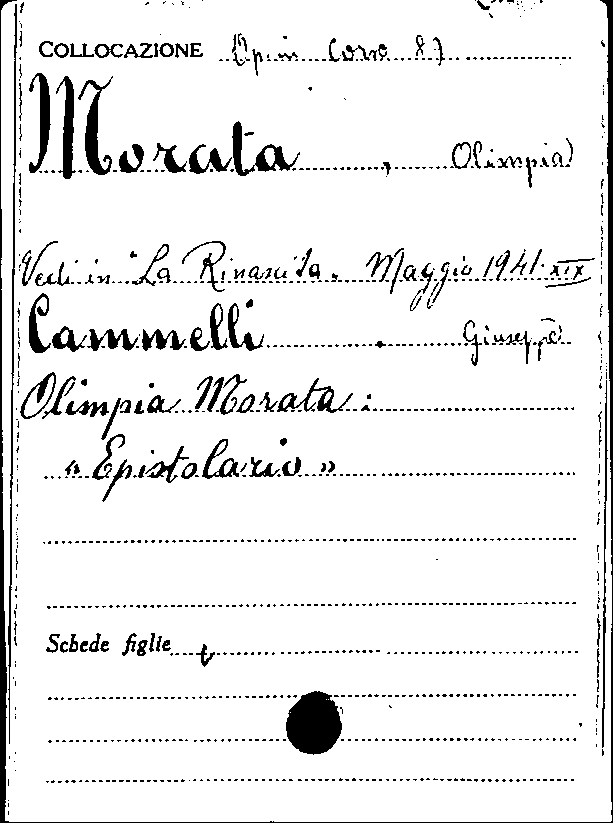 COLLOCAZIONE Op. in Corso 87
Morata, Olimpia
Vedi in "La Rinascita. Maggio 1941. XIX
Cammelli. Giuseppe
Olimpia Morata:
« Epistolario »
Schede figlie